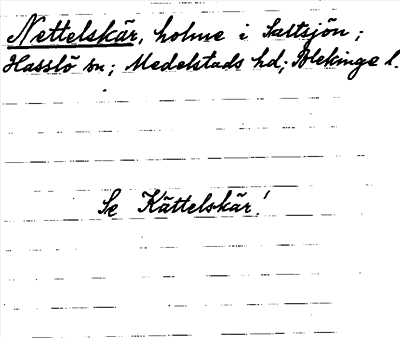 Nettelskär, holme i Saltsjön;
Hasslö sn; Medelstads hd; Blekinge l.
Se Kättelskär!